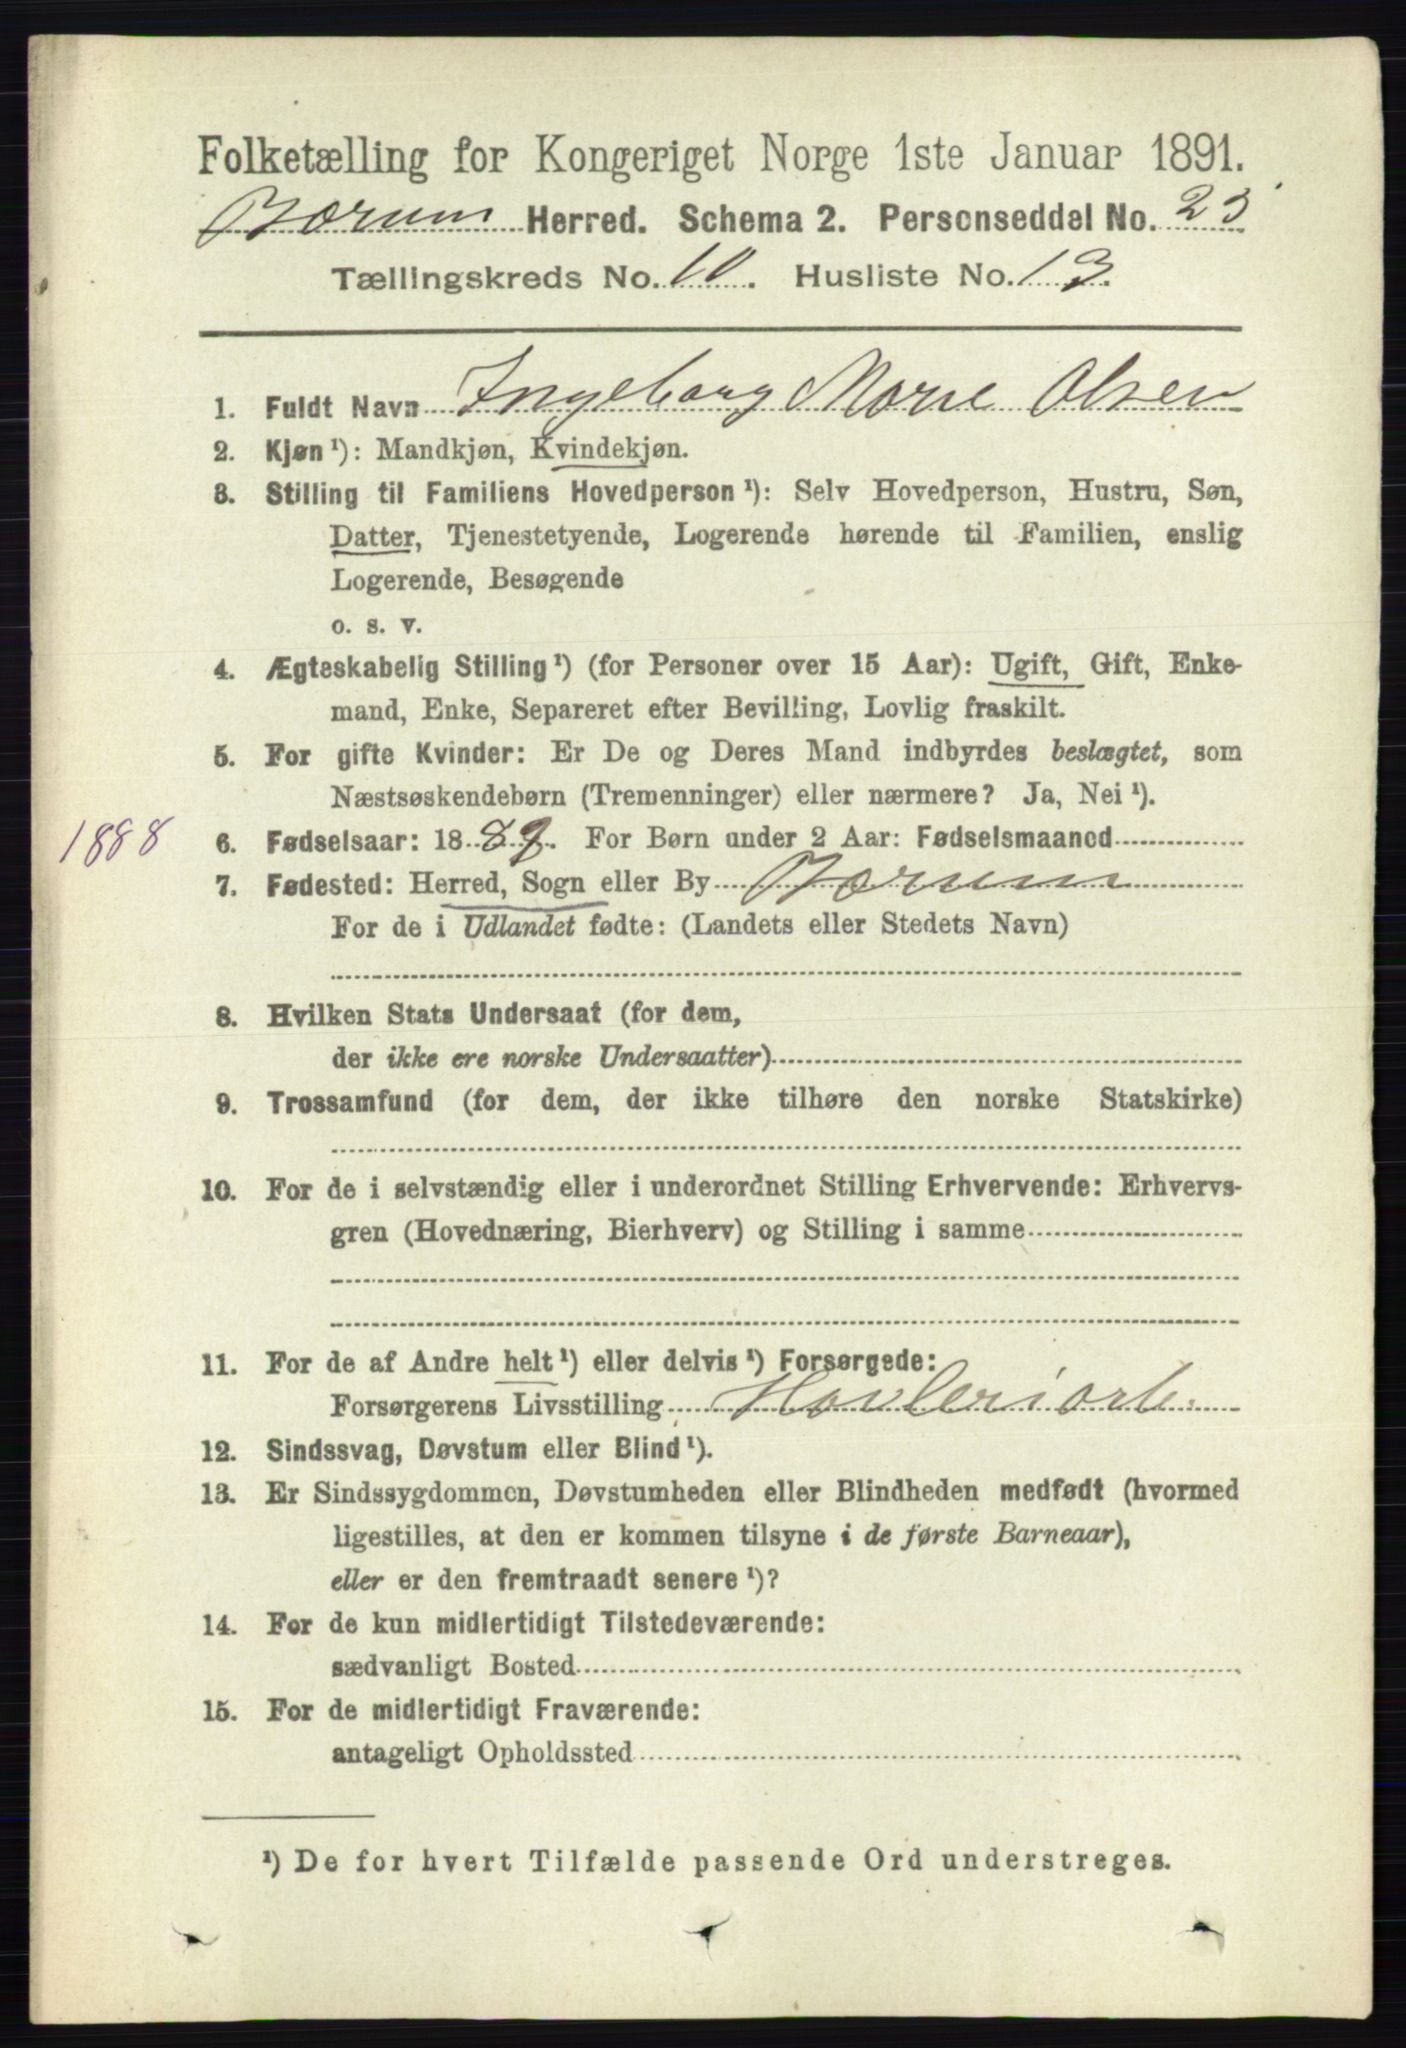 Folketælling for Kongeriget Norge 1ste Januar 1891.
Bærum Herred. Schema 2. Personseddel No. 23
Tællingskreds No. 10. Husliste No. 13.
1. Fuldt Navn Ingeborg Marie Olsen
2. Kjøn ¹): Mandkjøn, Kvindekjøn.
3. Stilling til Familiens Hovedperson ¹): Selv Hovedperson, Hustru, Søn,
Datter, Tjenestetyende, Logerende hørende til Familien, enslig
Logerende, Besøgende
o. s. v.
4. Ægteskabelig Stilling ¹) (for Personer over 15 Aar): Ugift, Gift, Enke-
mand, Enke, Separeret efter Bevilling, Lovlig fraskilt.
5. For gifte Kvinder: Er De og Deres Mand indbyrdes beslægtet, som
Næstsøskendebørn (Tremenninger) eller nærmere? Ja, Nei ¹).
1888 6. Fødselsaar: 18 89. For Børn under 2 Aar: Fødselsmaaned
7. Fødested: Herred, Sogn eller By Bærum
For de i Udlandet fødte: (Landets eller Stedets Navn)
8. Hvilken Stats Undersaat (for dem,
der ikke ere norske Undersaatter)
9. Trossamfund (for dem, der ikke tilhøre den norske Statskirke)
10. For de i selvstændig eller i underordnet Stilling Erhvervende: Erhvervs-
gren (Hovednæring, Bierhverv) og Stilling i samme
11. For de af Andre helt ¹) eller delvis ¹) Forsørgede:
Forsørgerens Livsstilling
12. Sindssvag, Døvstum eller Blind ¹).
13. Er Sindssygdommen, Døvstumheden eller Blindheden medfødt (hvormed
ligestilles, at den er kommen tilsyne i de første Barneaar),
eller er den fremtraadt senere ¹)?
14. For de kun midlertidigt Tilstedeværende:
sædvanligt Bosted
15. For de midlertidigt Fraværende:
antageligt Opholdssted
¹) De for hvert Tilfælde passende Ord understreges.